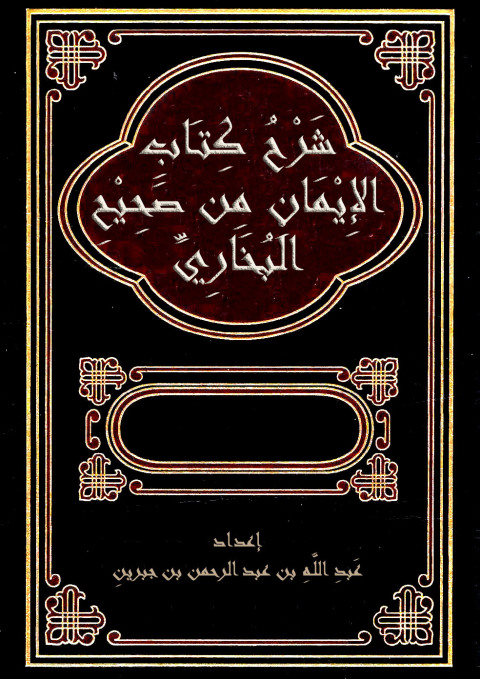 شَرْحُ كِتَابِ
الإِيْمَانِ مِنْ صَحِيْحِ
البُخَارِيِّ
إعداد
عَبدِ اللَّهِ بن عبد الرحمن بن جبرينِ